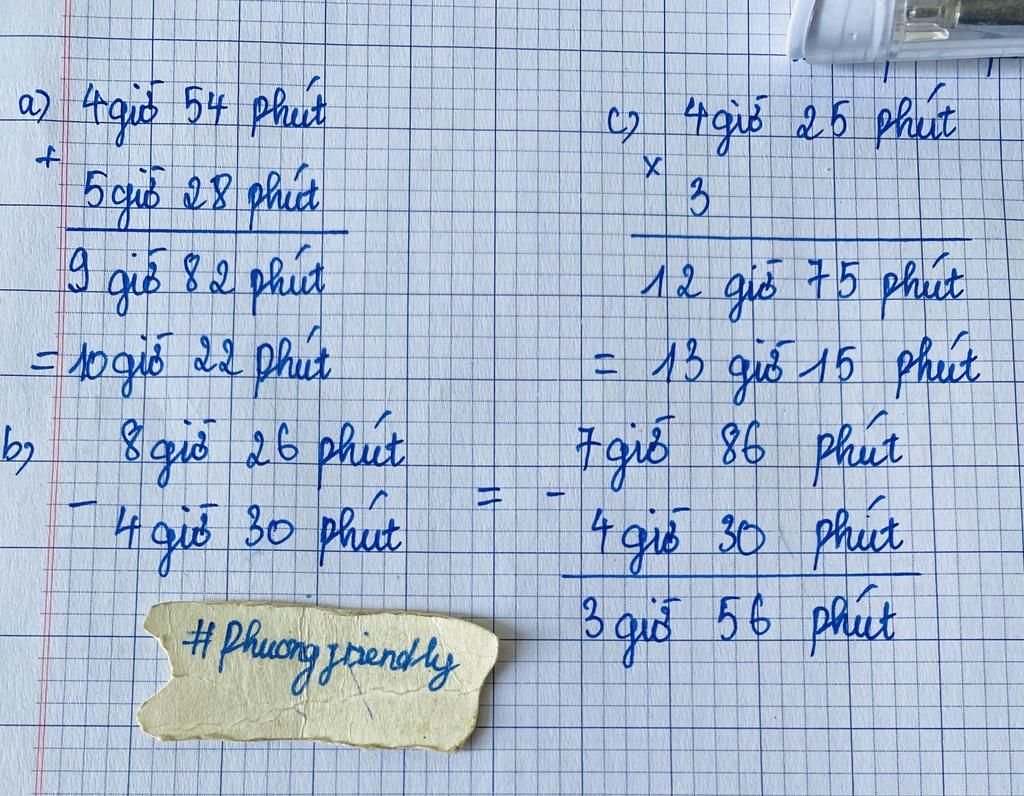 a) 4 giờ 54 phút
+
5 giờ 28 phút
9 giờ 82 phút
= 10 giờ 22 phút
c) 4 giờ 25 phút
x
3
12 giờ 75 phút
= 13 giờ 15 phút
b) 8 giờ 26 phút
-
4 giờ 30 phút
=
-
7 giờ 86 phút
4 giờ 30 phút
3 giờ 56 phút
#Phuongfriendly